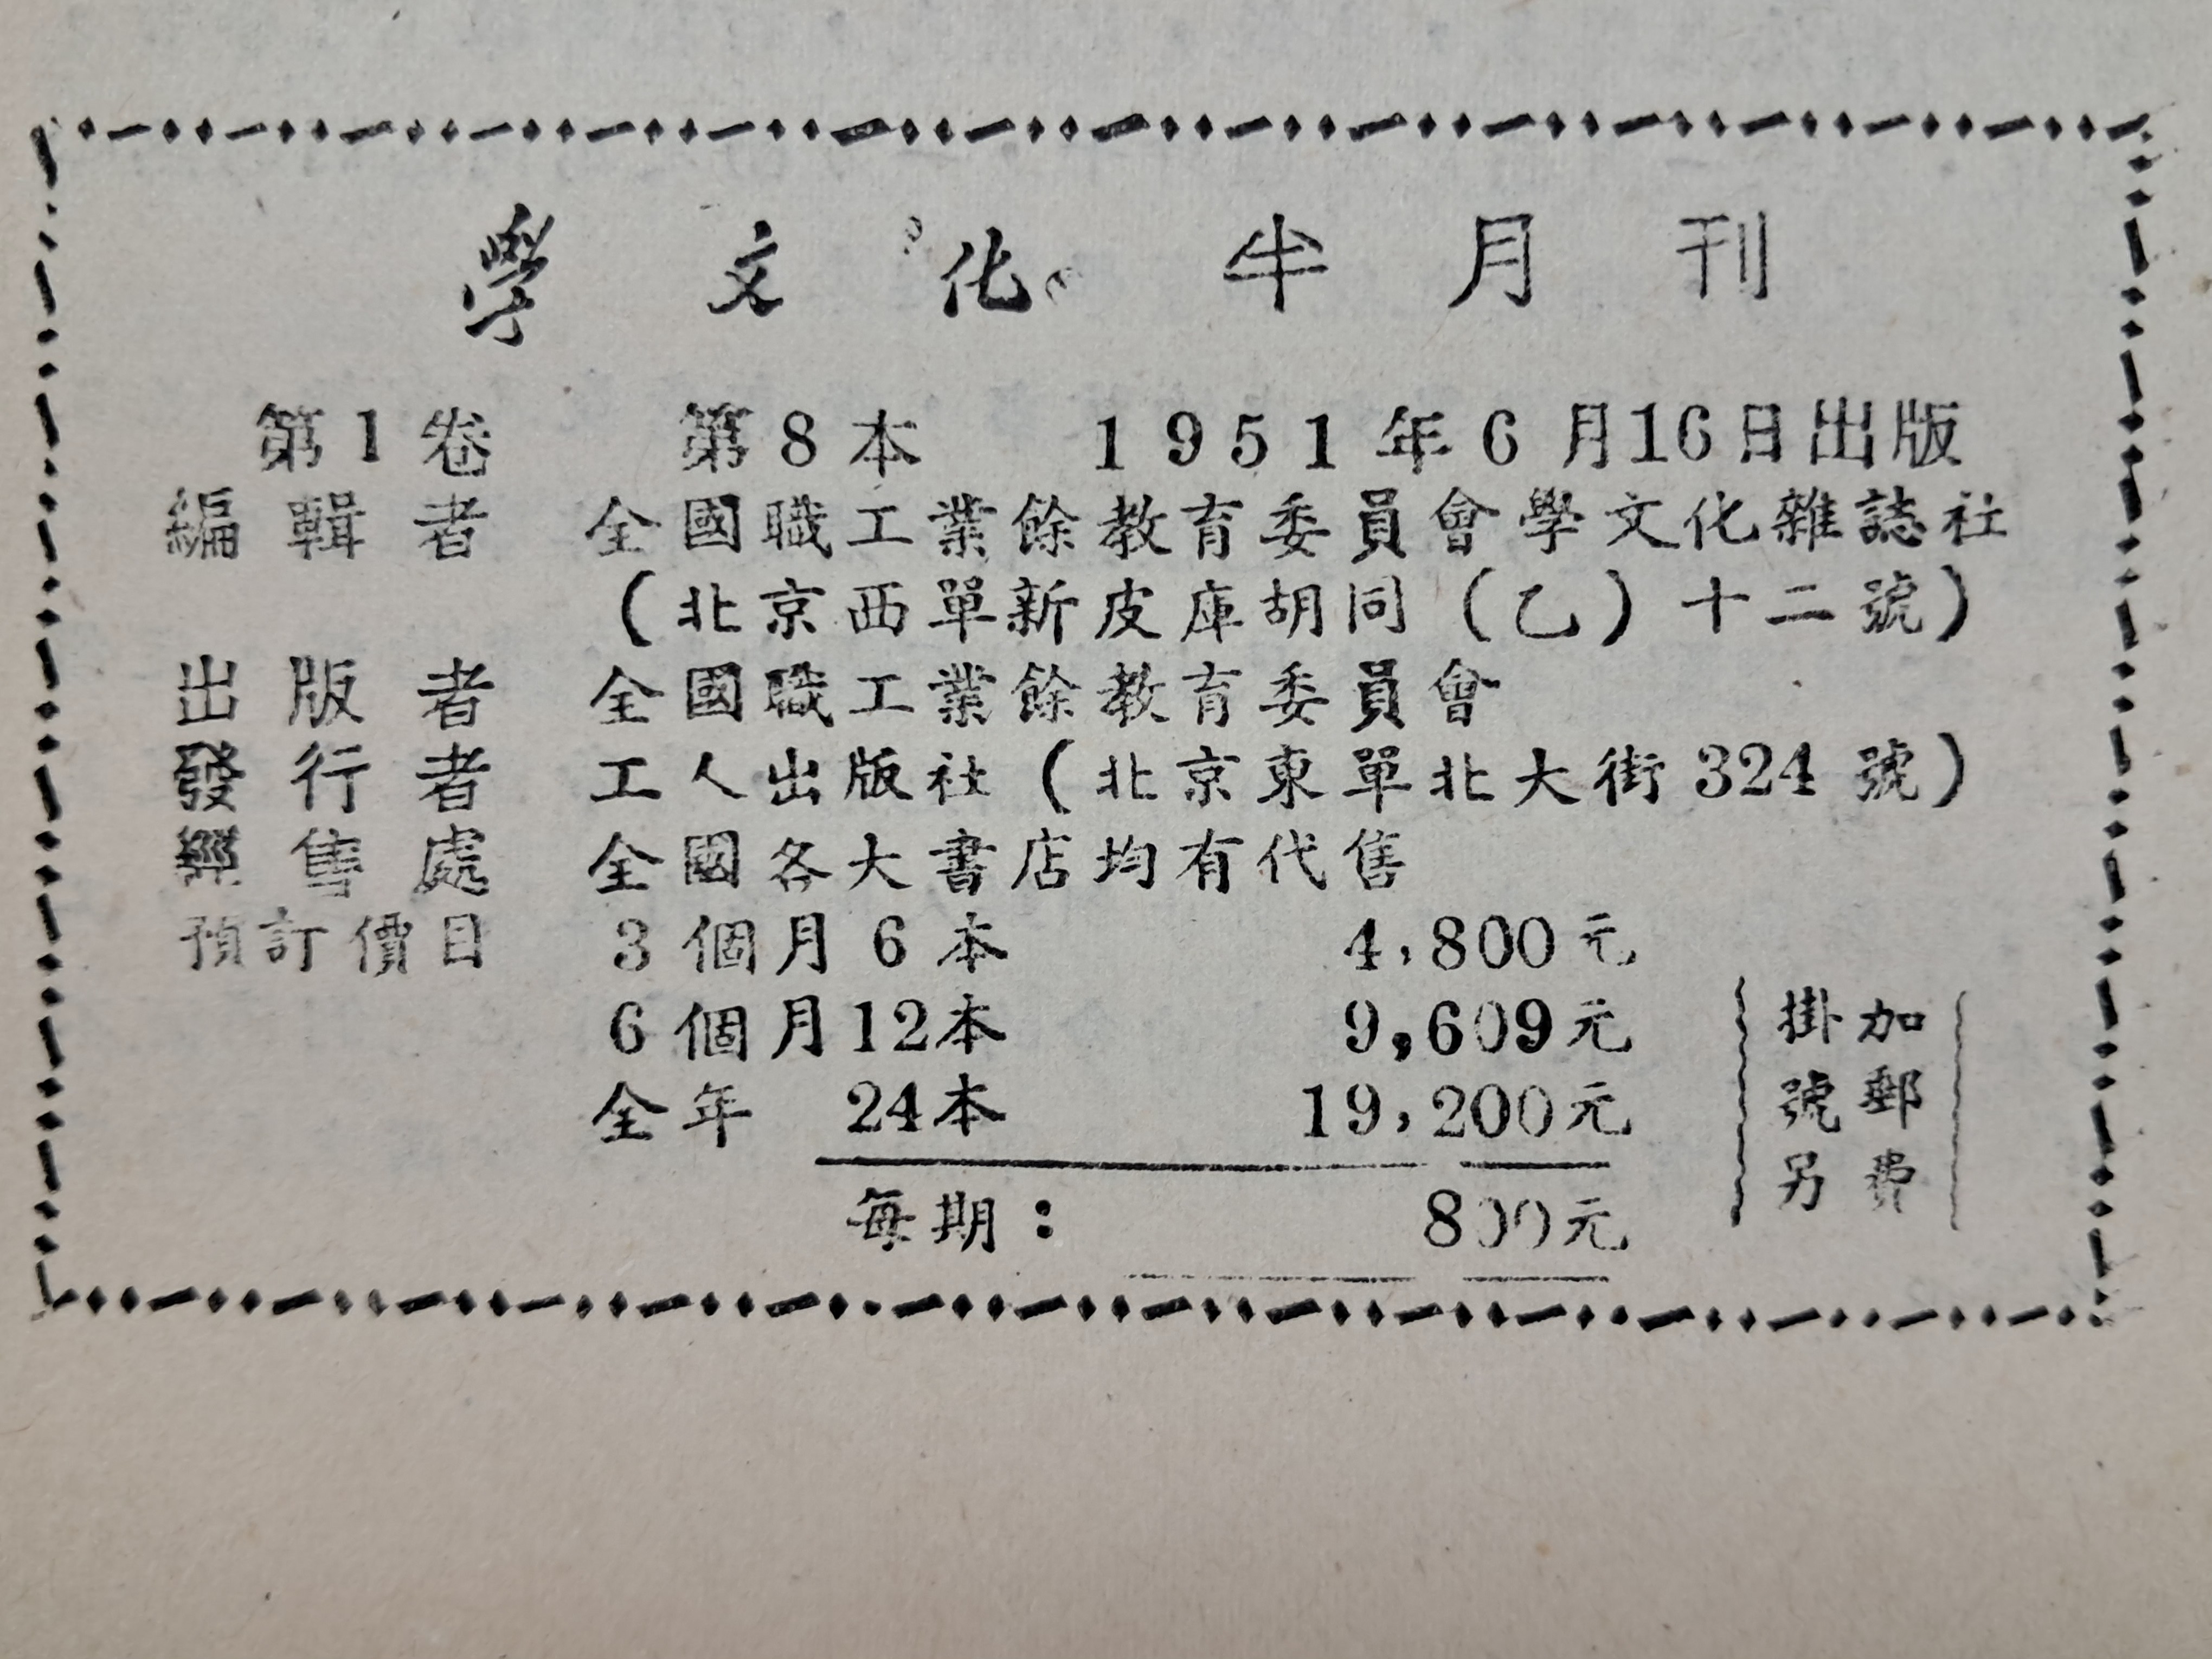 學文化半月刊
第1卷 第8本 1951年6月16日出版
編輯者 全國職工業餘教育委員會學文化雜誌社
(北京西單新皮庫胡同(乙)十二號)
出版者 全國職工業餘教育委員會
發行者 工人出版社(北京東單北大街324號)
售處 全國各大書店均有代售
預訂價目 3個月6本 4,800元
6個月12本 9,609元
全年 24本 19,200元
每期: 800元
掛號另
加郵費